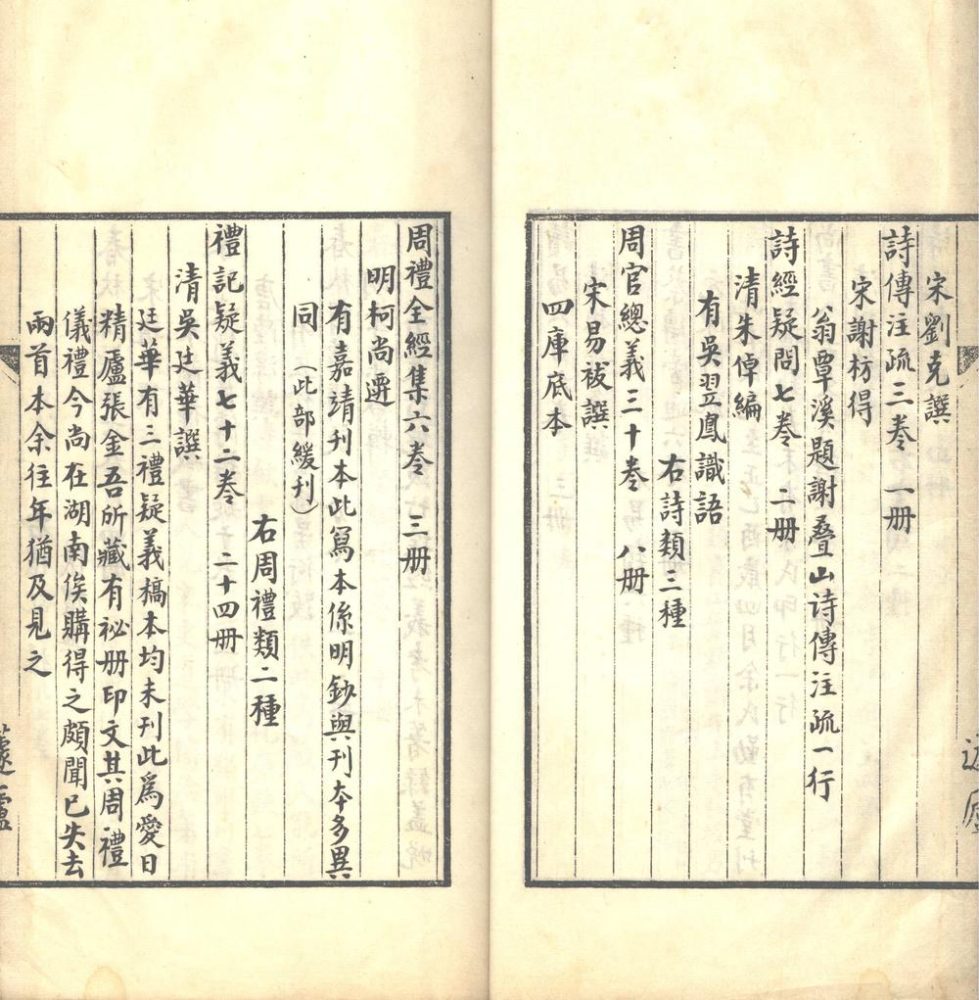 宋劉克撰
詩傳注疏三卷 一册
宋謝枋得
翁覃溪題謝疊山诗傳注疏一行
詩經疑問七卷 二册
清朱倬編
有吳翌鳳識語
右詩類三種
周官總義三十卷 八册
宋易祓譔
四庫底本
周禮全經集六卷 三册
明柯尚遷
有嘉靖刊本此寫本係明鈔與刊本多異
同（此部緩刊）
右周禮類二種
禮記疑義七十二卷 二十四册
清吳廷華譔
廷華有三禮疑義槁本均未刊此為愛日
精廬張金吾所藏有祕册印文其周禮
儀禮今尚在湖南俟購得之頗聞已失去
兩首本余往年猶及見之
蘧廬